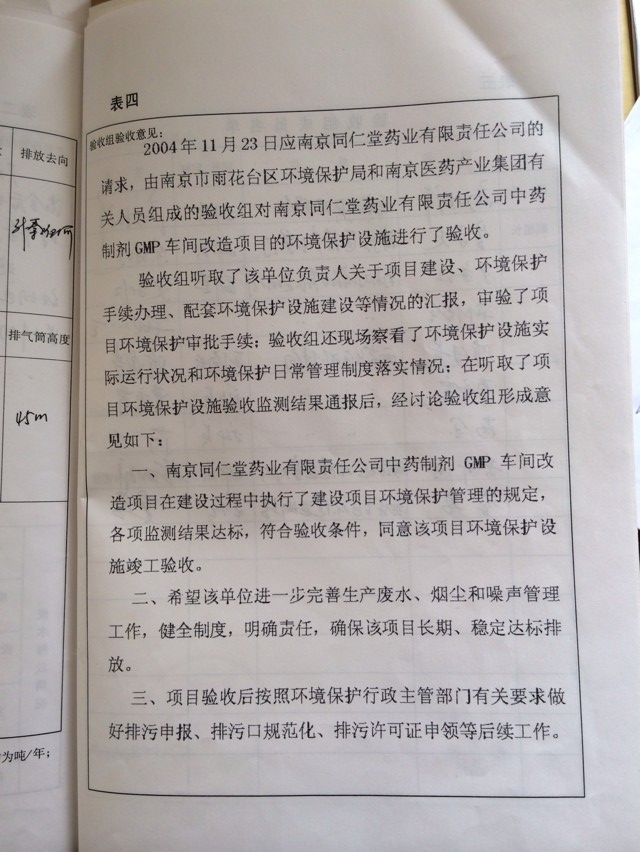 排放去向
排气筒高度
45m
为吨/年；
表四
验收组验收意见：
2004年11月23日应南京同仁堂药业有限责任公司的
请求，由南京市雨花台区环境保护局和南京医药产业集团有
关人员组成的验收组对南京同仁堂药业有限责任公司中药
制剂GMP车间改造项目的环境保护设施进行了验收。
验收组听取了该单位负责人关于项目建设、环境保护
手续办理、配套环境保护设施建设等情况的汇报，审验了项
目环境保护审批手续；验收组还现场察看了环境保护设施实
际运行状况和环境保护日常管理制度落实情况；在听取了项
目环境保护设施验收监测结果通报后，经讨论验收组形成意
见如下：
一、南京同仁堂药业有限责任公司中药制剂 GMP 车间改
造项目在建设过程中执行了建设项目环境保护管理的规定，
各项监测结果达标，符合验收条件，同意该项目环境保护设
施竣工验收。
二、希望该单位进一步完善生产废水、烟尘和噪声管理
工作，健全制度，明确责任，确保该项目长期、稳定达标排
放。
三、项目验收后按照环境保护行政主管部门有关要求做
好排污申报、排污口规范化、排污许可证申领等后续工作。